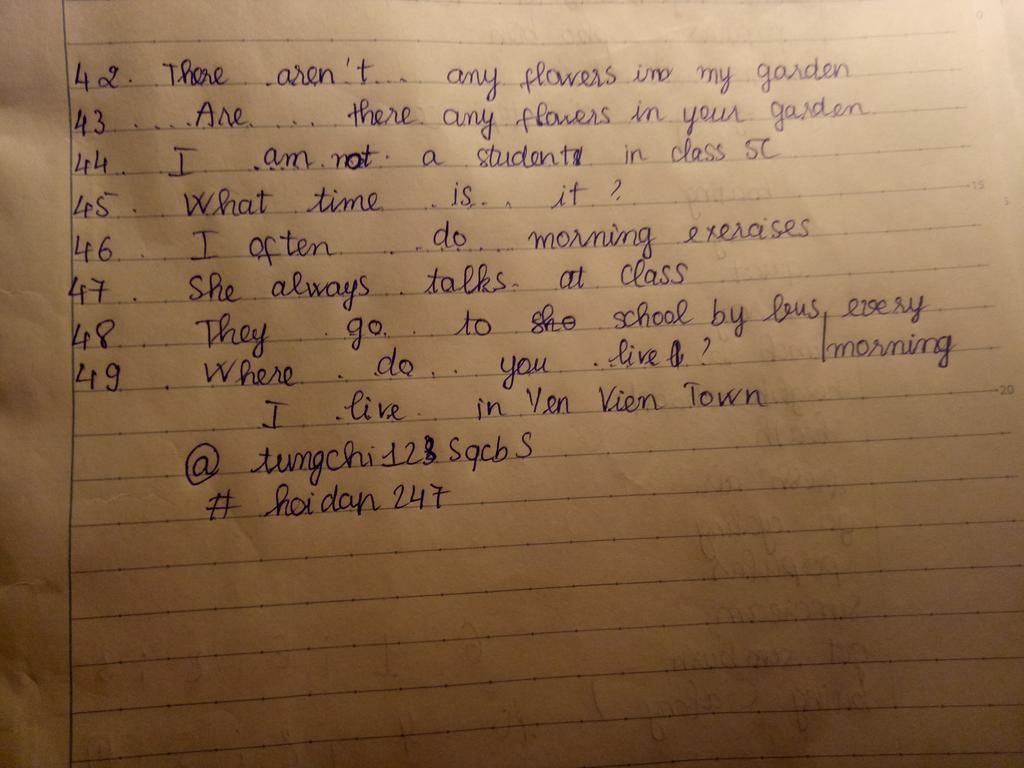 42. There aren't... any flowers in my garden
43 ....Are.... there any flowers in your garden
44 I .am not. a student in class 5C
45. What time .is.. it ?
46 . I often ..do.. morning exercises
47 . She always .talks. at class
48 . They .go. to school by bus every
49 . Where .do.. you .live ? morning
I .live. in Yen Vien Town
@ tungchi123 sqcbs
# hoidap 247
15
20